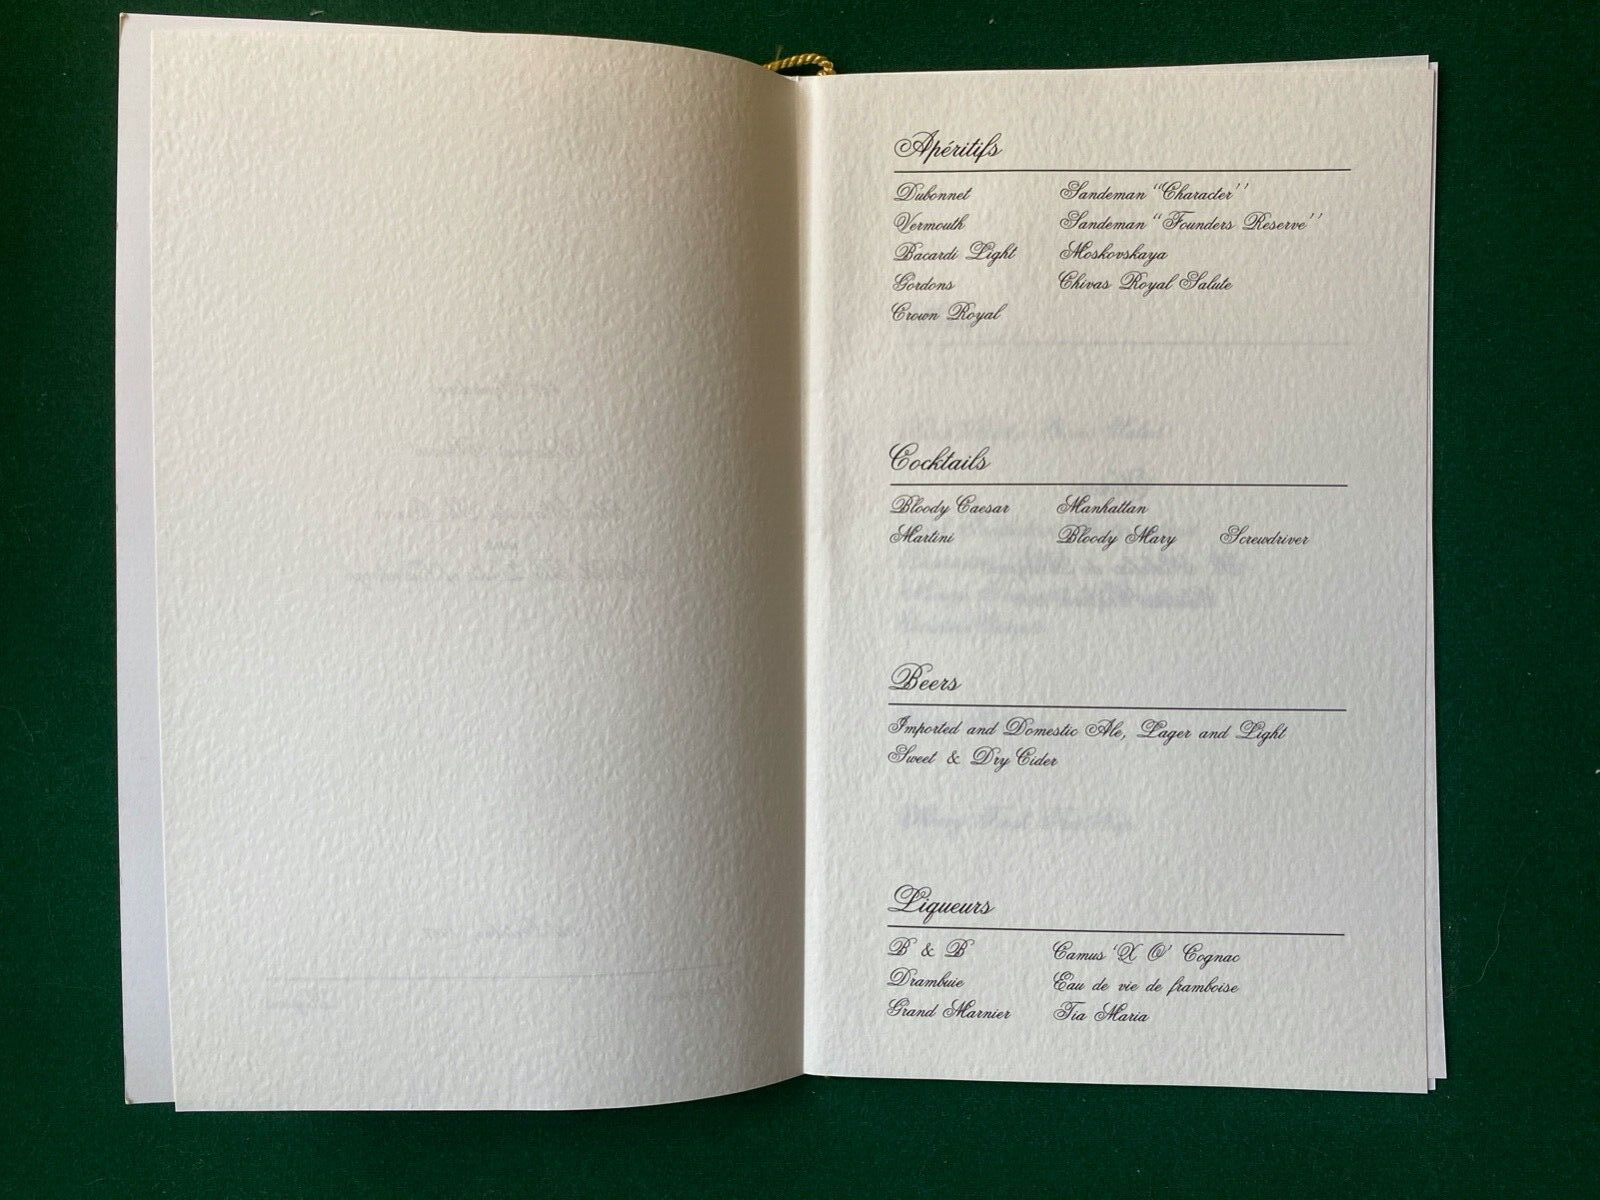 Apéritifs
Dubonnet Sandeman "Character''
Vermouth Sandeman "Founders Reserve''
Bacardi Light Moskovskaya
Gordons Chivas Royal Salute
Crown Royal
Cocktails
Bloody Caesar Manhattan
Martini Bloody Mary Screwdriver
Beers
Imported and Domestic Ale, Lager and Light
Sweet & Dry Cider
Liqueurs
B & B Camus 'X O' Cognac
Drambuie Eau de vie de framboise
Grand Marnier Tia Maria